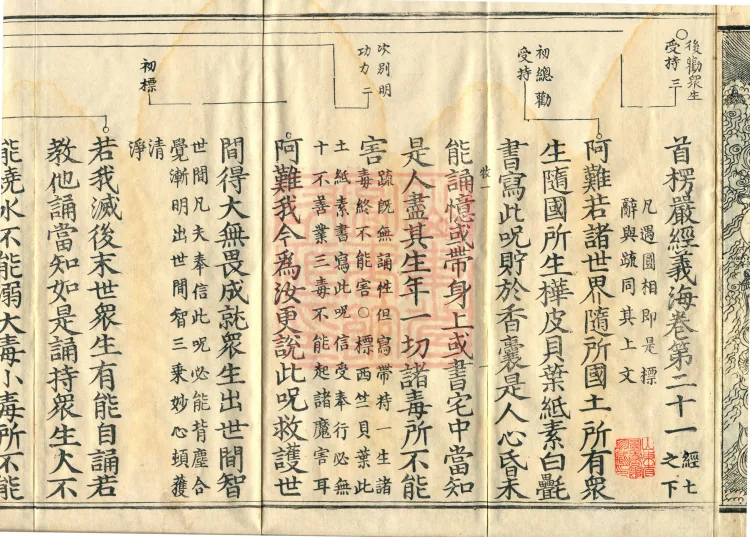 後勸衆生
受持三
初總勸
受持
次別明
功力二
初標
首楞嚴經義海卷第二十一
經七
之下
凡遇圓相即是標
辭與䟽同其上文
阿難若諸世界隨所國土所有衆
生隨國所生樺皮貝葉紙素白㲲
書寫此呪貯於香囊是人心昏未
能誦憶或帶身上或書宅中當知
是人盡其生年一切諸毒所不能
害
䟽旣無誦性但寫帶持一生諸
毒終不能害○標西竺貝葉此
土紙素書寫此呪信受奉行必無
十不善業三毒不能起諸魔害耳
阿難我今爲汝更說此呪救護世
間得大無畏成就衆生出世間智
世間凡夫奉信此呪必能背塵合
覺漸明出世間智三乘妙心頓獲
清
淨
若我滅後末世衆生有能自誦若
教他誦當知如是誦持衆生火不
能燒水不能溺大毒小毒所不能